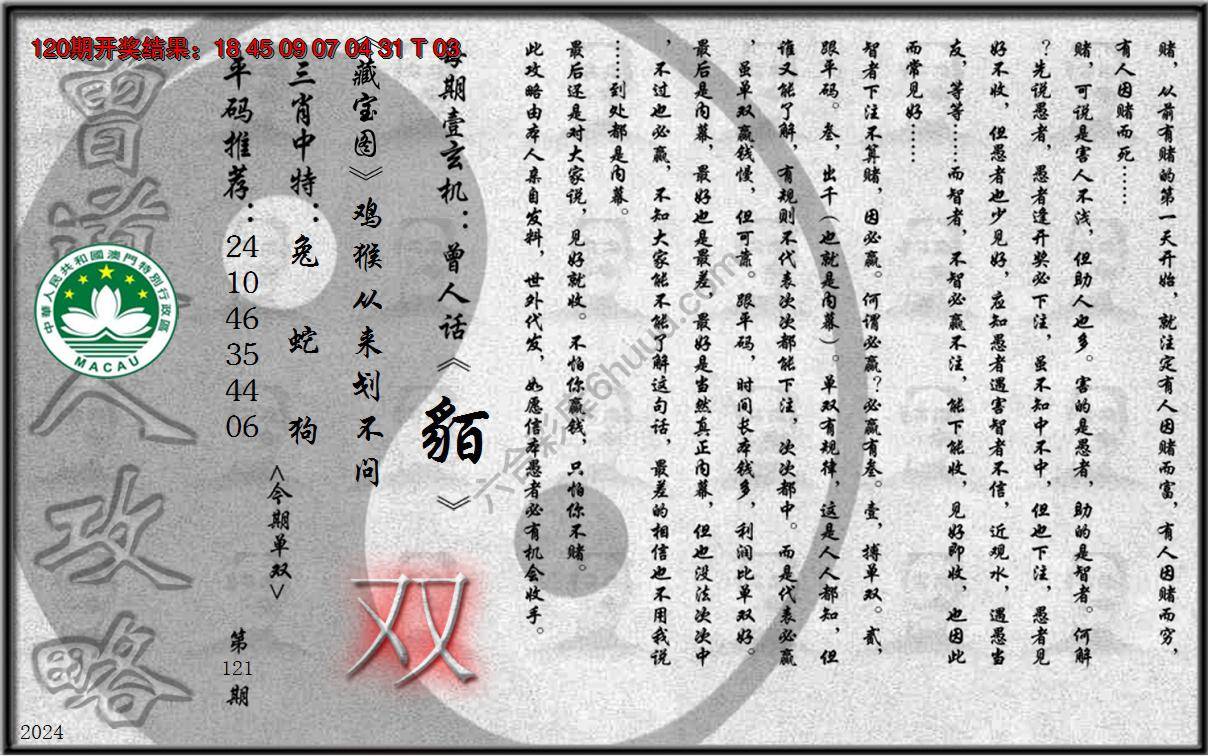 120期开奖结果：18 45 09 07 04 31 T 03
赌，从前有赌的第一天开始，就注定有人因赌而富，有人因赌而穷，
有人因赌而死……
赌，可说是害人不浅，但助人也多。害的是愚者，助的是智者。何解
？先说愚者，愚者逢开奖必下注，虽不知中不中，但也下注，愚者见
好不收，但愚者也少见好，应知愚者遇害智者不信，近观水，遇愚当
友，等等……而智者，不智必赢不注，能下能收，见好即收，也因此
而常见好……
智者下注不算赌，因必赢。何谓必赢？必赢有叁。壹，搏单双。贰，
跟平码。叁，出千（也就是内幕）。单双有规律，这是人人都知，但
谁又能了解，有规则不代表次次都能下注，次次都中。而是代表必赢
，虽单双赢钱慢，但可靠。跟平码，时间长本钱多，利润比单双好。
最后是内幕，最好也是最差，最好是当然真正内幕，但也没法次次中
，不过也必赢，不知大家能不能了解这句话，最差的相信也不用我说
……到处都是内幕。
最后还是对大家说，见好就收。不怕你赢钱，只怕你不赌。
此攻略由本人亲自发料，世外代发，如愿信本愚者必有机会收手。
每期壹玄机：曾人话《貊》
《藏宝图》鸡猴从来划不问
三肖中特：兔 蛇 狗
平码推荐：
24
10
46
35
44
06
<今期单双>
双
第
121
期
曾道人攻略
中華人民共和國澳門特別行政區
MACAU
六合彩库6huu.com
2024